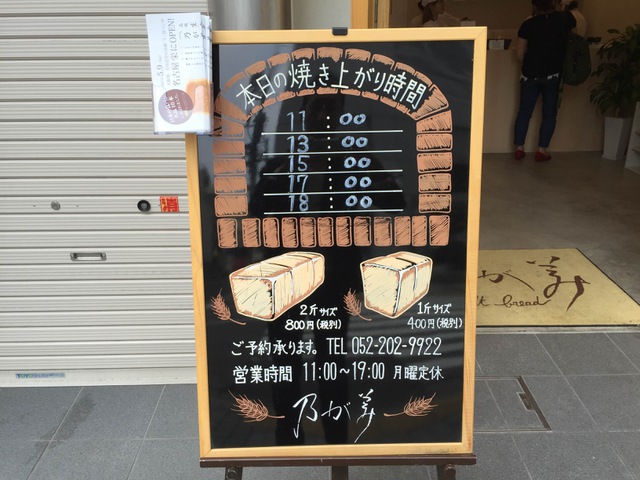 本日の焼き上がり時間
11:00
13:00
15:00
17:00
18:00
2斤サイズ
800円(税別)
1斤サイズ
400円(税別)
ご予約承ります。 TEL 052-202-9922
営業時間 11:00～19:00 月曜定休
乃が美
名古屋栄にOPEN!
が美
bread